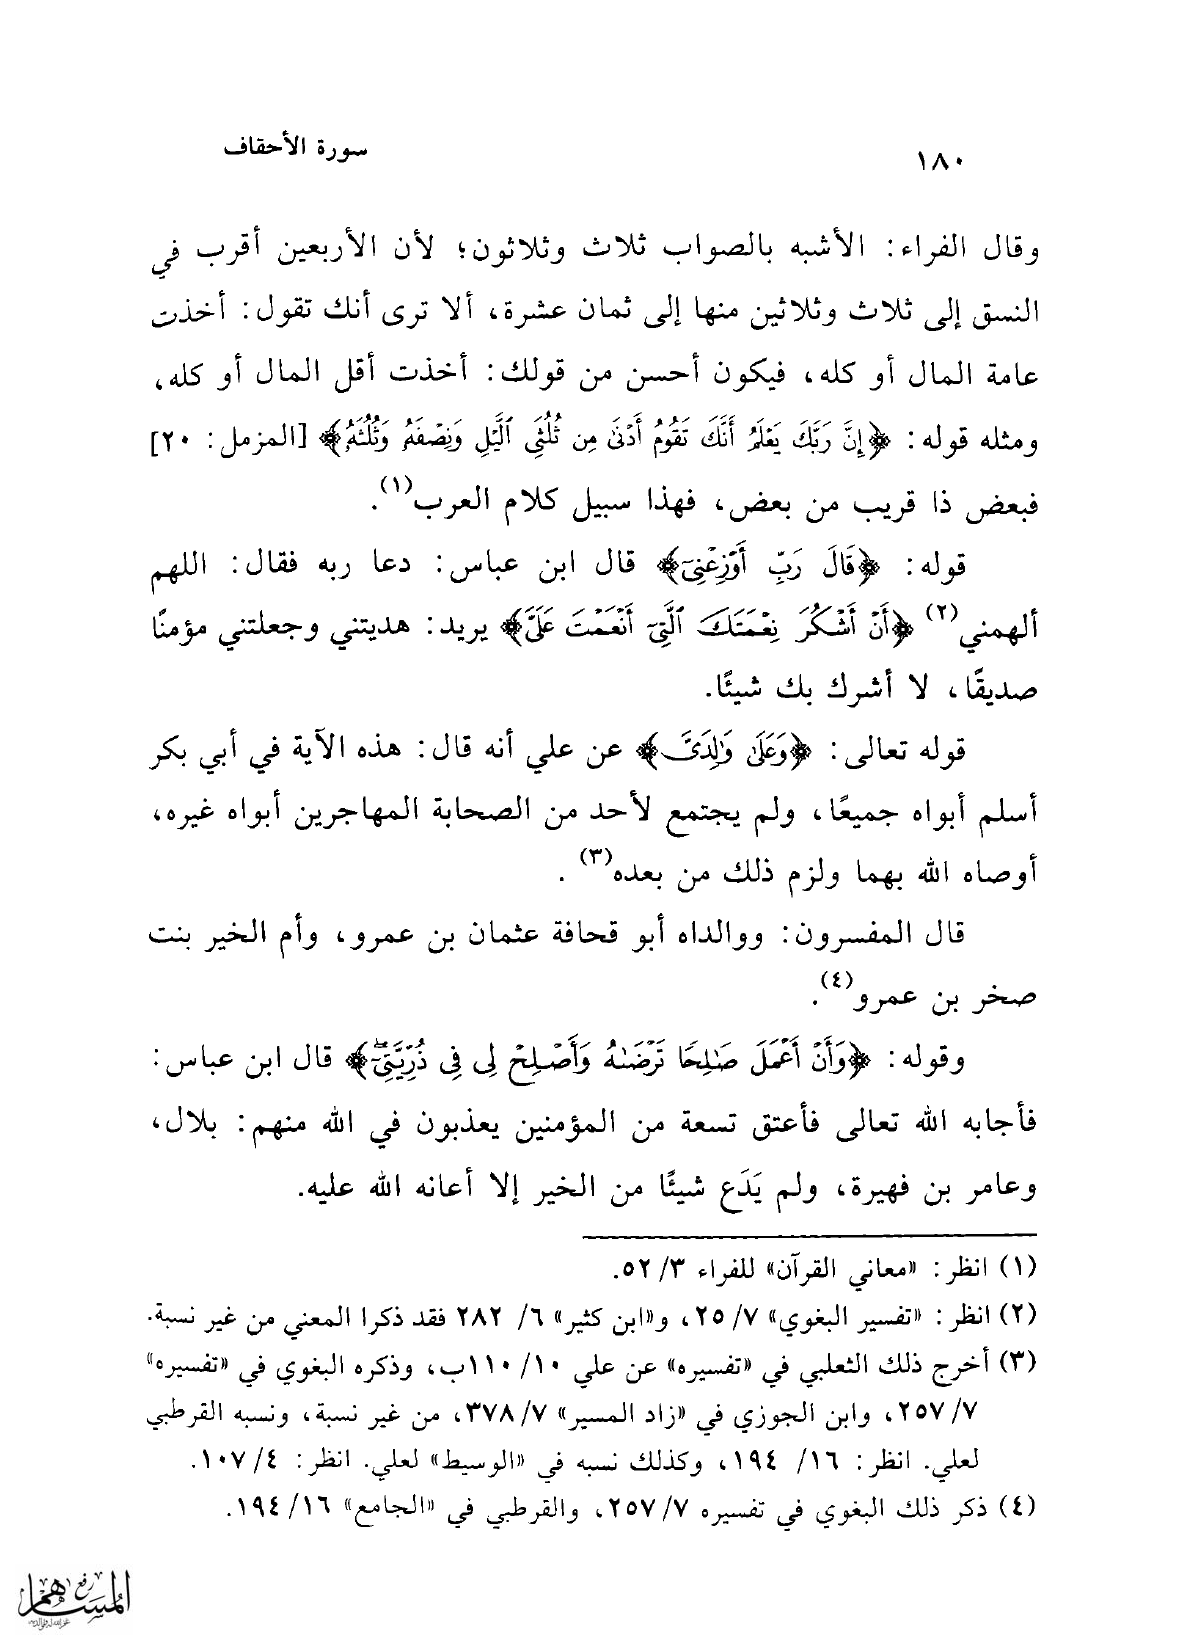 ١٨٠ سورة الأحقاف
وقال الفراء: الأشبه بالصواب ثلاث وثلاثون؛ لأن الأربعين أقرب في
النسق إلى ثلاث وثلاثين منها إلى ثمان عشرة، ألا ترى أنك تقول: أخذت
عامة المال أو كله، فيكون أحسن من قولك: أخذت أقل المال أو كله،
ومثله قوله: ﴿إِنَّ رَبَّكَ يَعْلَمُ أَنَّكَ تَقُومُ أَدْنَىٰ مِن ثُلُثَىِ ٱلَّيْلِ وَنِصْفَهُۥ وَثُلُثَهُۥ﴾ [المزمل: ٢٠]
فبعض ذا قريب من بعض، فهذا سبيل كلام العرب(١).
قوله: ﴿قَالَ رَبِّ أَوْزِعْنِىٓ﴾ قال ابن عباس: دعا ربه فقال: اللهم
ألهمني(٢) ﴿أَنْ أَشْكُرَ نِعْمَتَكَ ٱلَّتِىٓ أَنْعَمْتَ عَلَىَّ﴾ يريد: هديتني وجعلتني مؤمنًا
صديقًا، لا أشرك بك شيئًا.
قوله تعالى: ﴿وَعَلَىٰ وَٰلِدَىَّ﴾ عن علي أنه قال: هذه الآية في أبي بكر
أسلم أبواه جميعًا، ولم يجتمع لأحد من الصحابة المهاجرين أبواه غيره،
أوصاه الله بهما ولزم ذلك من بعده(٣) .
قال المفسرون: ووالداه أبو قحافة عثمان بن عمرو، وأم الخير بنت
صخر بن عمرو(٤).
وقوله: ﴿وَأَنْ أَعْمَلَ صَٰلِحًا تَرْضَىٰهُ وَأَصْلِحْ لِى فِى ذُرِّيَّتِىٓ﴾ قال ابن عباس:
فأجابه الله تعالى فأعتق تسعة من المؤمنين يعذبون في الله منهم: بلال،
وعامر بن فهيرة، ولم يَدَع شيئًا من الخير إلا أعانه الله عليه.
(١) انظر: «معاني القرآن» للفراء ٥٢/٣.
(٢) انظر: «تفسير البغوي» ٢٥/٧، و«ابن كثير» ٦/ ٢٨٢ فقد ذكرا المعني من غير نسبة.
(٣) أخرج ذلك الثعلبي في «تفسيره» عن علي ١١٠/١٠ب، وذكره البغوي في «تفسيره»
٢٥٧/٧، وابن الجوزي في «زاد المسير» ٣٧٨/٧، من غير نسبة، ونسبه القرطبي
لعلي. انظر: ١٦/ ١٩٤، وكذلك نسبه في «الوسيط» لعلي. انظر: ١٠٧/٤.
(٤) ذكر ذلك البغوي في تفسيره ٢٥٧/٧، والقرطبي في «الجامع» ١٩٤/١٦.